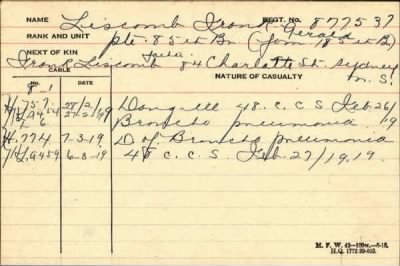 NAME Liscomb Frank Gerald REGT. NO. 877537
RANK AND UNIT pte 85th Bn (from 185th B)
NEXT OF KIN
Frank Liscomb 84 Charlotte St. Sydney N.S.
CABLE
NO. DATE NATURE OF CASUALTY
8-1
757 28/2/19 Dang ill 48. C. C. S Feb 26/19
27-2-19 Broncho pneumonia
774 7-3-19 D of Broncho pneumonia
9459 6-3-19 48 C. C. S. Feb. 27/19,19.
M. F. W. 42-
H.Q. 1772-39-893.